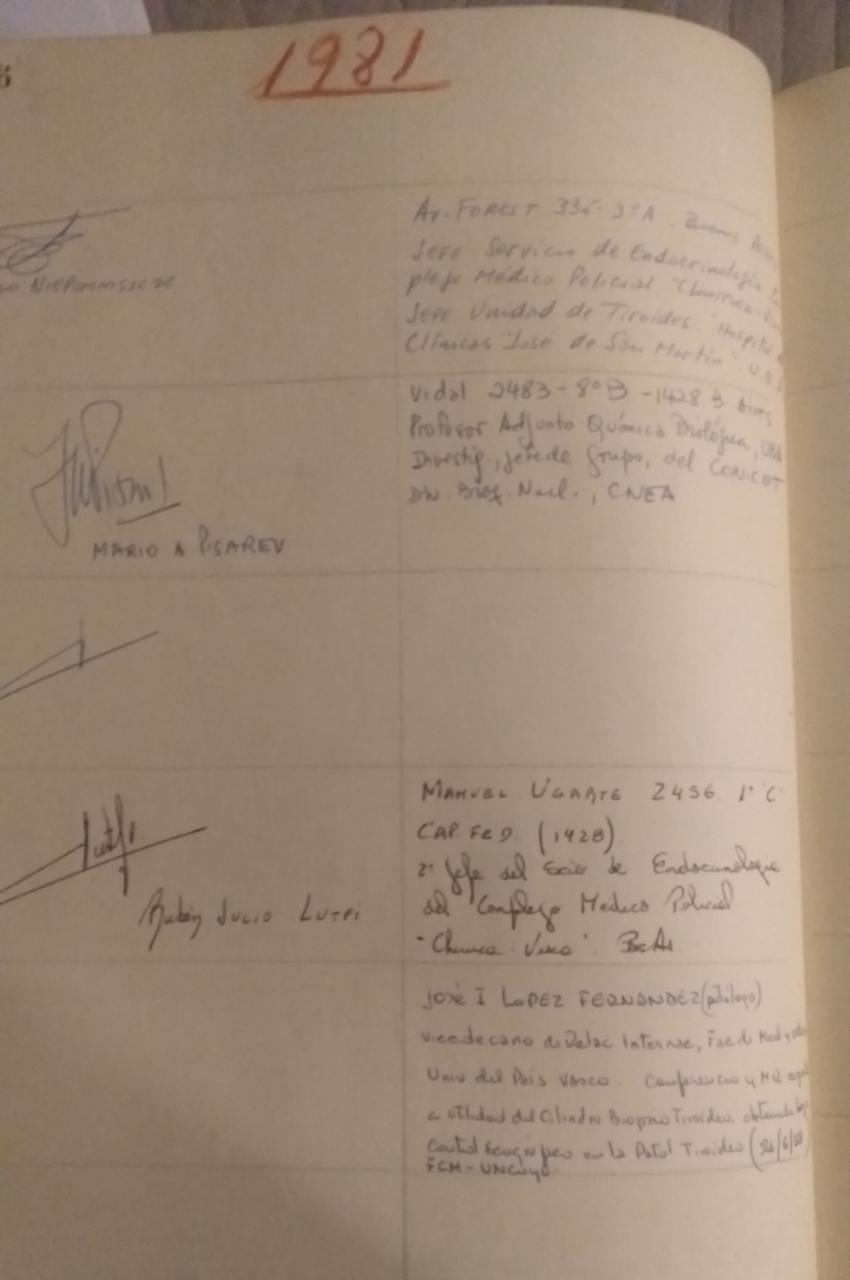 1981
NIEPOMNISZCZE
Av. FOREST 335-3°A. Buenos Aires
Jefe Servicio de Endocrinología
plejo Médico Policial "Churruca-
Jefe Unidad de Tiroides. "Hospital
Clínicas José de San Martín"
MARIO A. PISAREV
Vidal 2483-8°B-1428 B Aires
Profesor Adjunto Química Biológica, UBA
Investig., Jefe de Grupo, del CONICET
Div. Bioq. Nucl., CNEA
Rubén Julio Lutfi
MANUEL UGARTE 2456 1° "C"
CAP. FED. (1428)
2° Jefe del de Endocrinología
del Complejo Médico Policial
"Churruca-Visca". Bs As
José I LOPEZ FERNANDEZ (patólogo)
Vicedecano de Relac Internac, Fac de Med y
Univ del País Vasco. Conferencia y
utilidad del Cilindro Biopsia Tiroidea obtenido
Control Ecográfico en la Patol Tiroidea
FCM-UNCuyo.